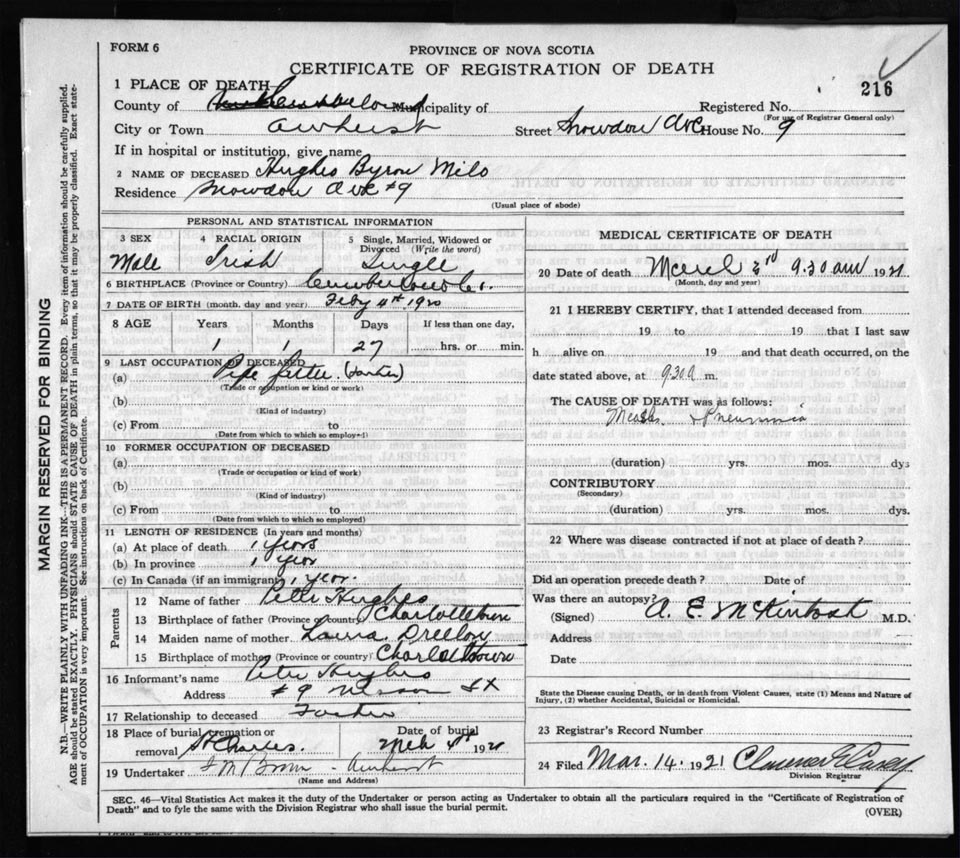 FORM 6
PROVINCE OF NOVA SCOTIA
CERTIFICATE OF REGISTRATION OF DEATH
216
1 PLACE OF DEATH
County of Cumberland Municipality of
Registered No.
(For use of Registrar General only)
City or Town Amherst Street Snowdon Ave House No. 9
If in hospital or institution, give name
2 NAME OF DECEASED Hughes Byron Milo
Residence Snowdon Ave #9
(Usual place of abode)
PERSONAL AND STATISTICAL INFORMATION
3 SEX 4 RACIAL ORIGIN 5 Single, Married, Widowed or Divorced (Write the word)
Male Irish Single
6 BIRTHPLACE (Province or Country) Cumberland Co.
7 DATE OF BIRTH (month, day and year) Feby 4th 1920
8 AGE Years Months Days If less than one day,
1 1 27 hrs. or min.
9 LAST OCCUPATION OF DECEASED
(a) Pipe fitter (Father)
(Trade or occupation or kind of work)
(b)
(Kind of industry)
(c) From to
(Date from which to which so employed)
10 FORMER OCCUPATION OF DECEASED
(a)
(Trade or occupation or kind of work)
(b)
(Kind of industry)
(c) From to
(Date from which to which so employed)
11 LENGTH OF RESIDENCE (In years and months)
(a) At place of death 1 years
(b) In province 1 year
(c) In Canada (if an immigrant) 1 year.
Parents
12 Name of father Peter Hughes
13 Birthplace of father (Province or country) Charlottetown
14 Maiden name of mother Laura
15 Birthplace of mother (Province or country) Charlottetown
16 Informant's name Peter Hughes
Address #9 St
17 Relationship to deceased Father
18 Place of burial, cremation or removal St Charles. Date of burial Mch 4th 1921
19 Undertaker Brown - Amherst
(Name and Address)
MEDICAL CERTIFICATE OF DEATH
20 Date of death March 3rd 9.30 am 1921
(Month, day and year)
21 I HEREBY CERTIFY, that I attended deceased from
19 to 19 that I last saw
h alive on 19 and that death occurred, on the
date stated above, at 930a m.
The CAUSE OF DEATH was as follows:
Measles + Pneumonia
(duration) yrs. mos. dys
CONTRIBUTORY
(Secondary)
(duration) yrs. mos. dys.
22 Where was disease contracted if not at place of death?
Did an operation precede death? Date of
Was there an autopsy?
(Signed) A. E. McKintosh M.D.
Address
Date
State the Disease causing Death, or in death from Violent Causes, state (1) Means and Nature of
Injury, (2) whether Accidental, Suicidal or Homicidal.
23 Registrar's Record Number
24 Filed Mar. 14. 1921
Division Registrar
SEC. 46—Vital Statistics Act makes it the duty of the Undertaker or person acting as Undertaker to obtain all the particulars required in the "Certificate of Registration of
Death" and to fyle the same with the Division Registrar who shall issue the burial permit.
(OVER)
MARGIN RESERVED FOR BINDING
N.B.—WRITE PLAINLY WITH UNFADING INK—THIS IS A PERMANENT RECORD. Every item of information should be carefully supplied.
AGE should be stated EXACTLY. PHYSICIANS should STATE CAUSE OF DEATH in plain terms, so that it may be properly classified. Exact state-
ment of OCCUPATION is very important. See instructions on back of Certificate.